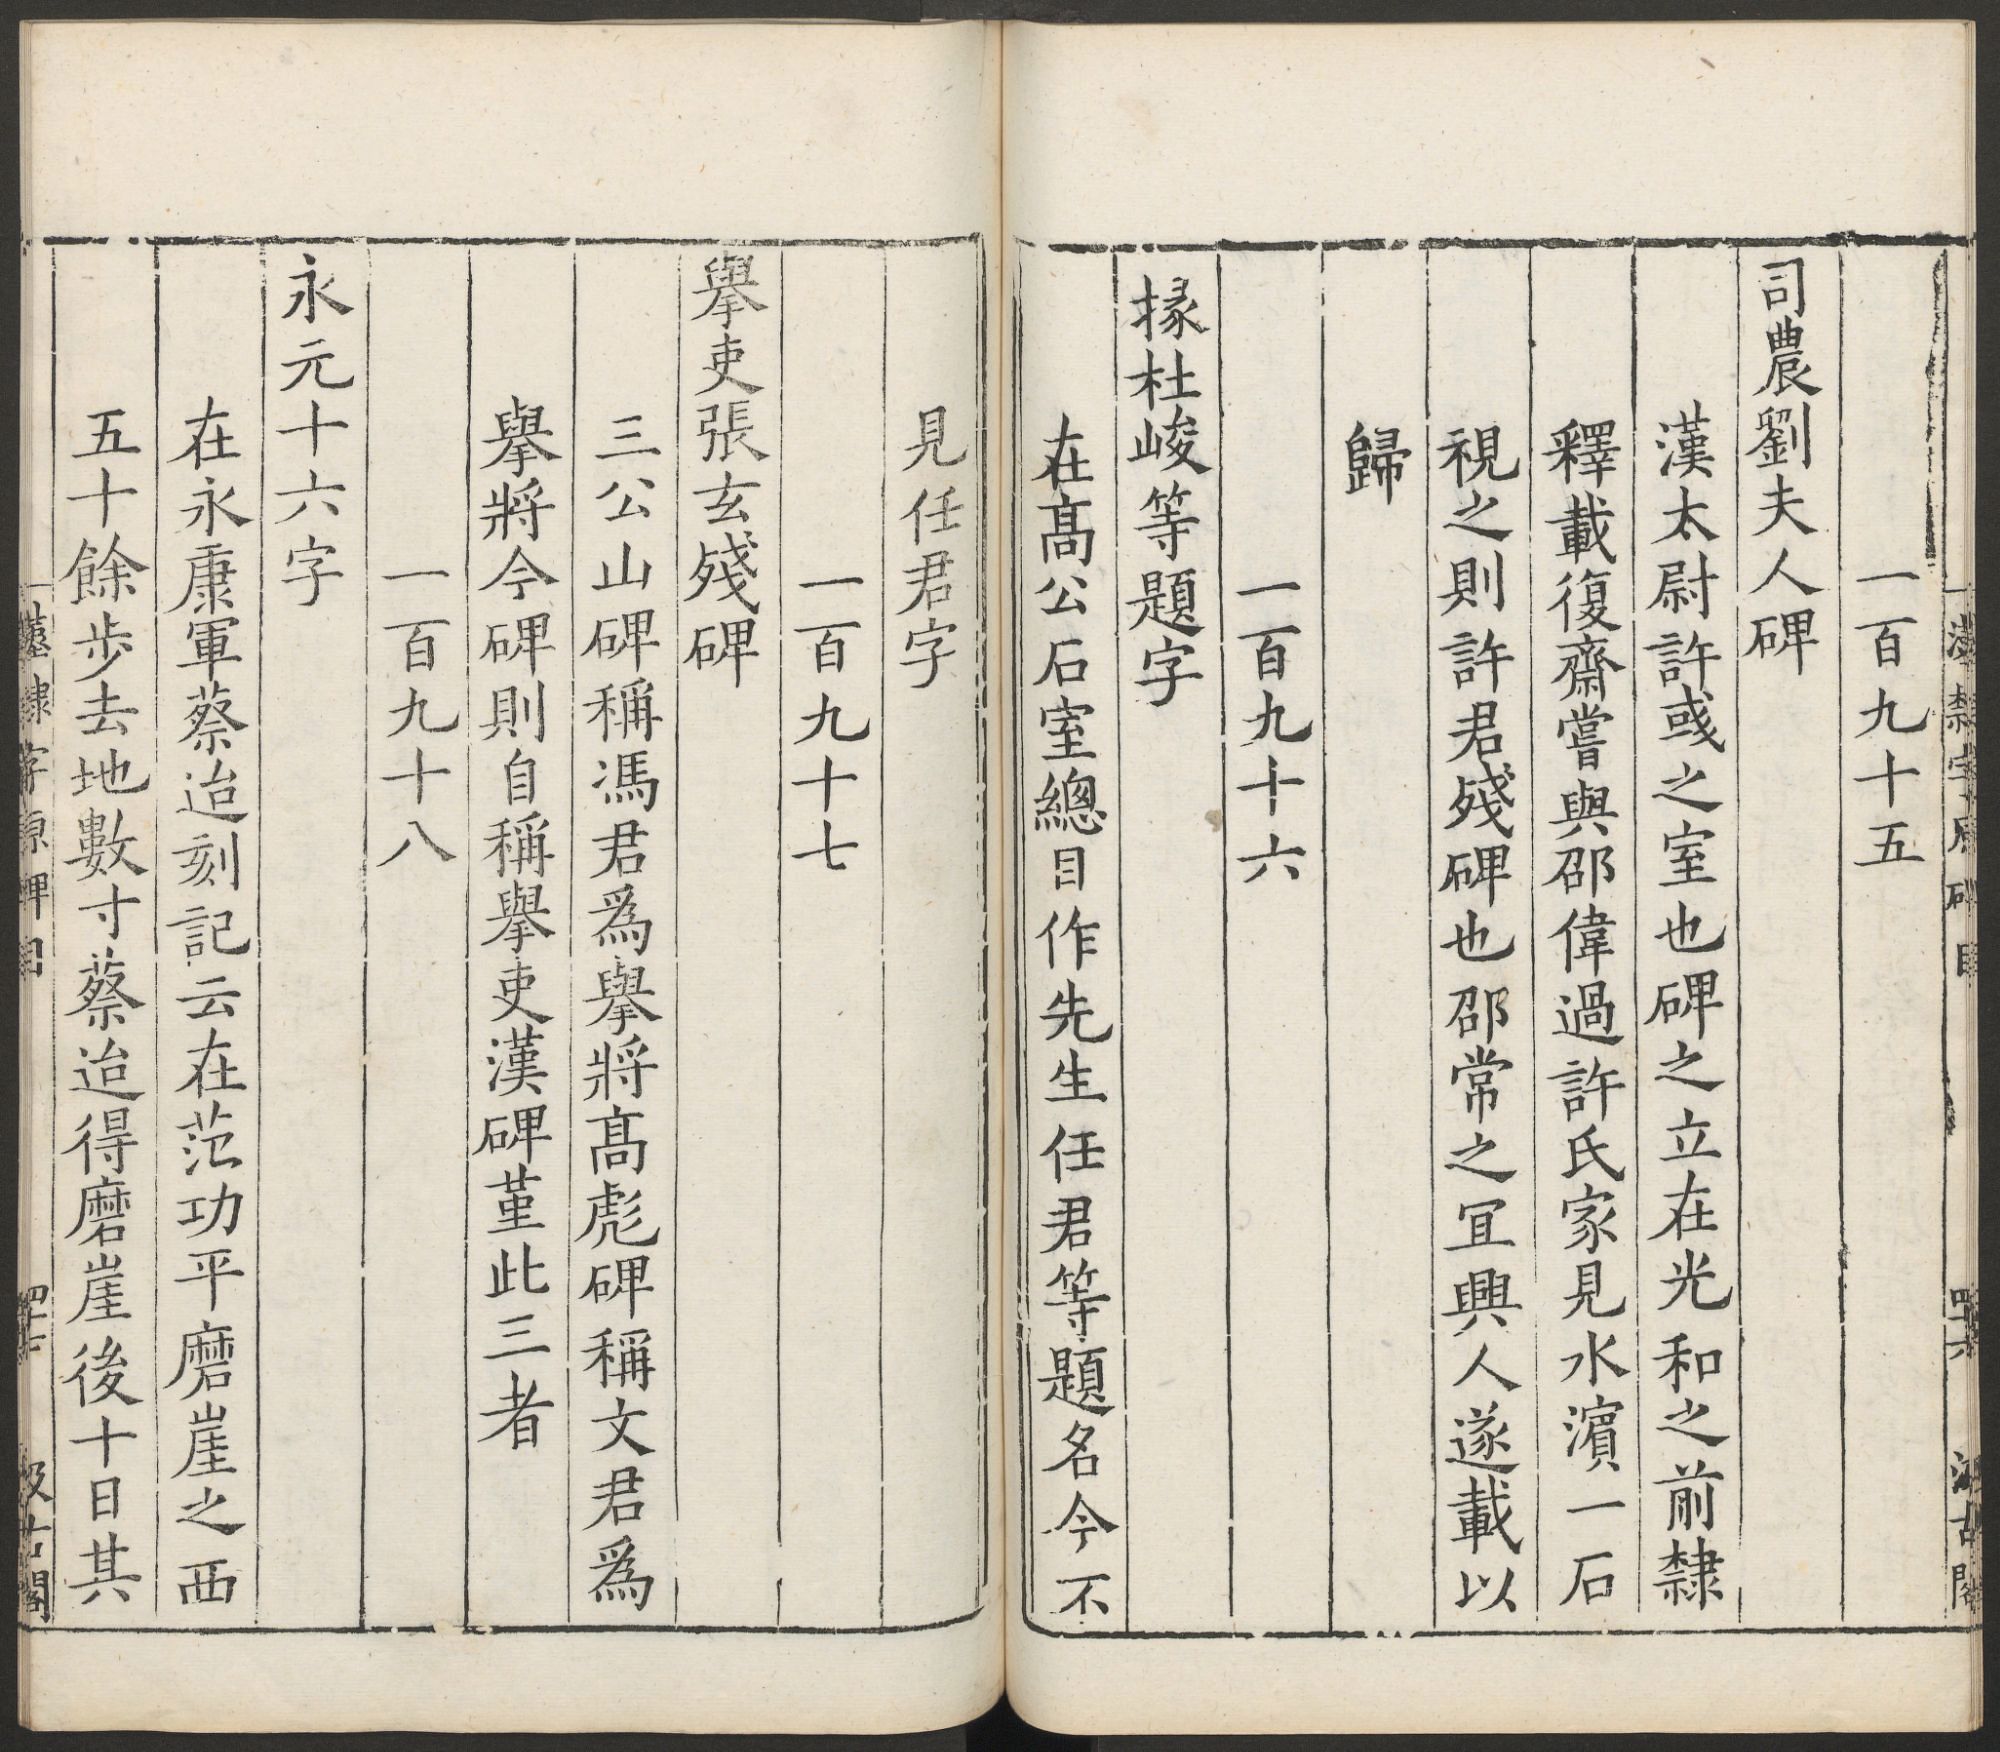 一百九十五
司農劉夫人碑
漢太尉許彧之室也碑之立在光和之前隸
釋載復齋嘗與邵偉過許氏家見水濵一石
視之則許君殘碑也邵常之冝興人遂載以
歸
一百九十六
掾杜峻等題字
在髙公石室總目作先生任君等題名今不
見任君字
一百九十七
舉吏張玄殘碑
三公山碑稱馮君爲舉將髙彪碑稱文君爲
舉將今碑則自稱舉吏漢碑堇此三者
一百九十八
永元十六字
在永康軍蔡迨刻記云在范功平磨崖之西
五十餘步去地數寸蔡迨得磨崖後十日其
漢隸字原碑目 四十七 汲古閣